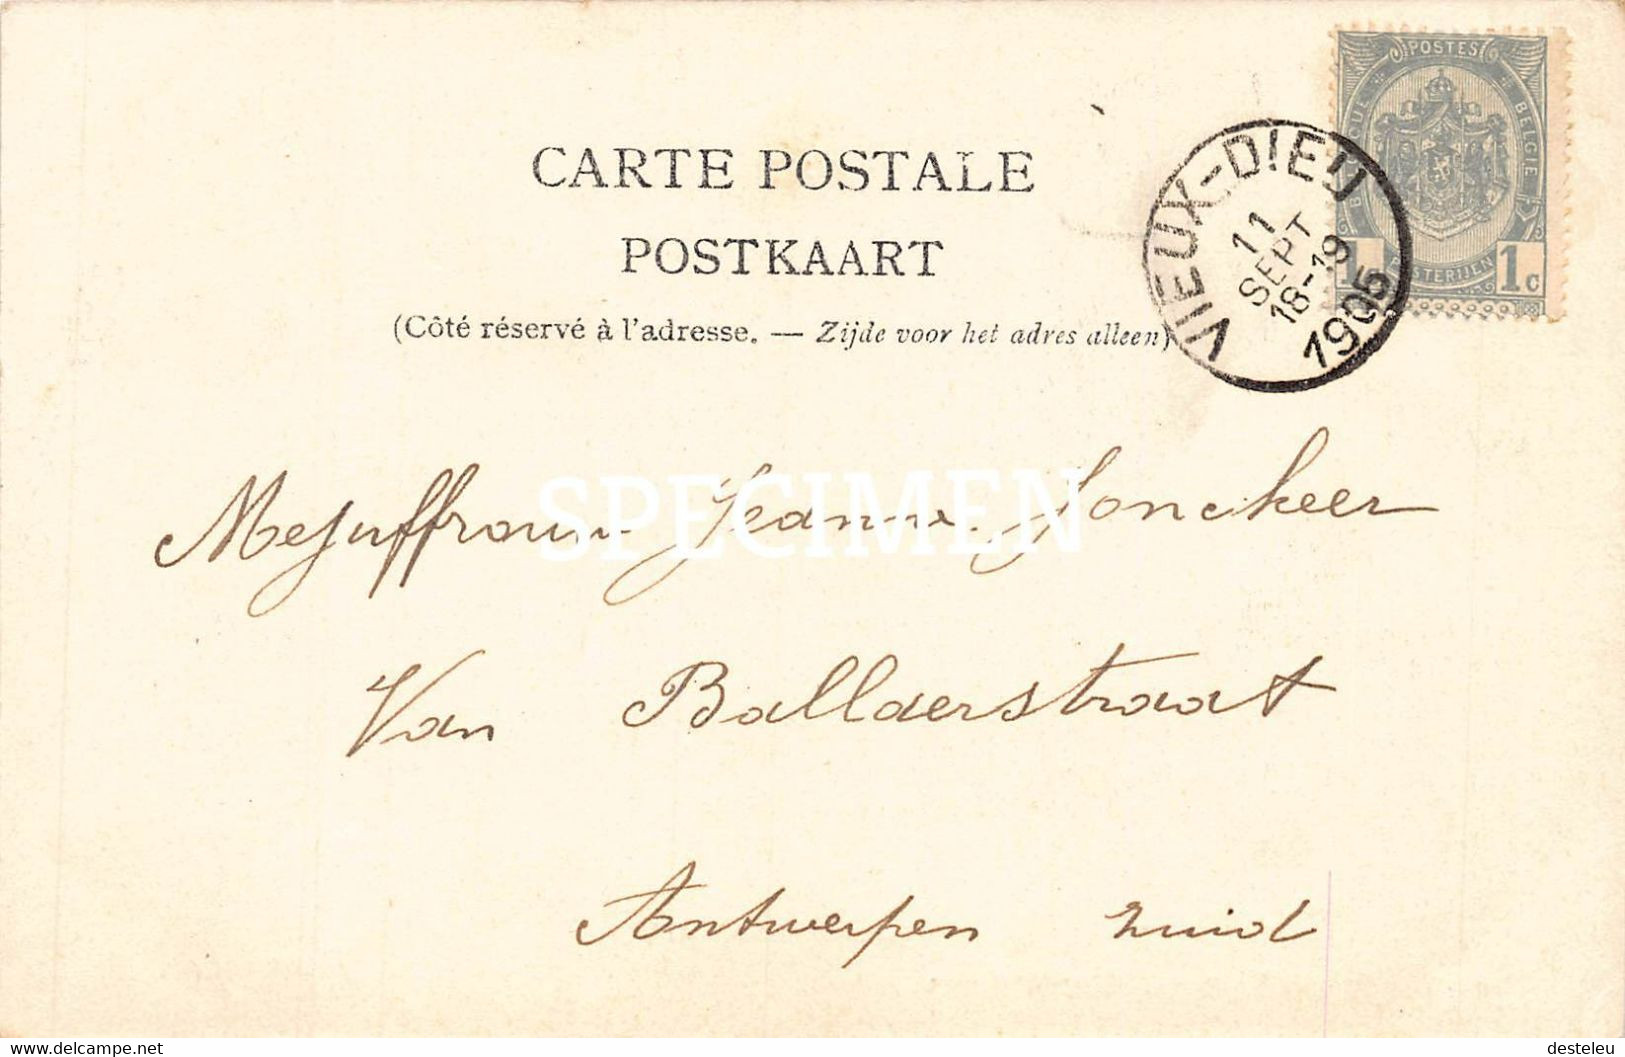 POSTES
BELGIE
POSTERIJEN
1 1c
VIEUX-DIEU
11
SEPT
18-19
1905
CARTE POSTALE
POSTKAART
(Côté réservé à l'adresse. — Zijde voor het adres alleen)
SPECIMEN
Mejuffrouw Jeanne Jonckeer
Van Ballaerstraat
Antwerpen zuid
delcampe.net
desteleu